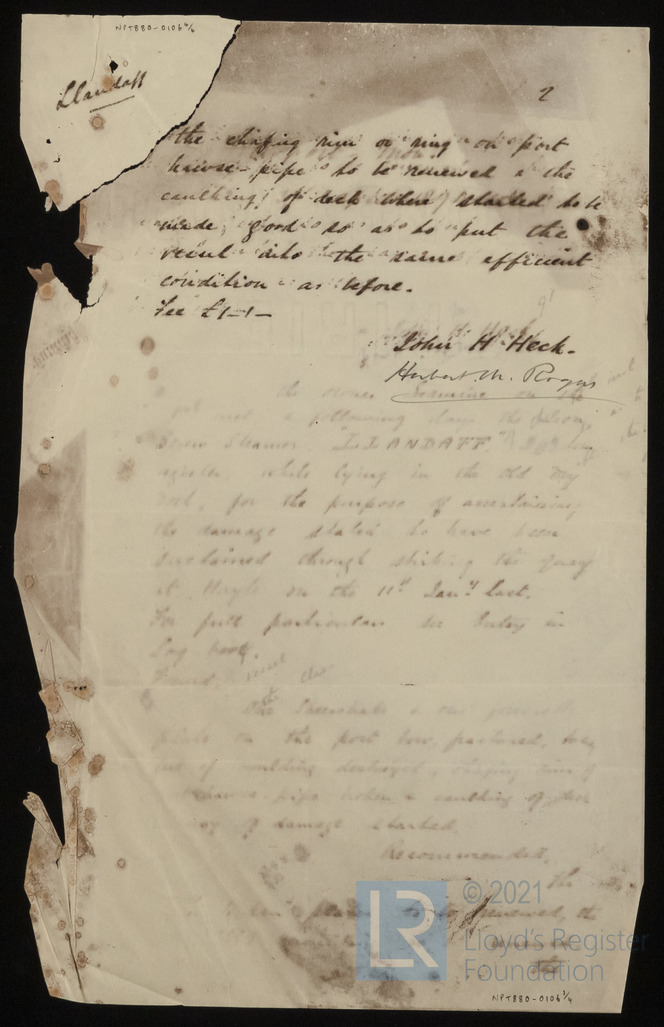 NPT880-0106 4/6
Llandaff
2
the chafing rim or ring on port
hawse-pipe to be renewed & the
caulking of deck where started to be
made good so as to put the
vessel into the same efficient
condition as before.
Fee £1-1-
John H Heck.
Herbert. M. Rogers
the owner
following day the
Screw Steamer "LLANDAFF"
register, while lying in the old Dry
Dock, for the purpose of ascertaining
the damage stated to have been
sustained through striking the Quay
at Hayle on the 11th Jany last.
For full particulars see Entry in
Log book.
Found,
vessel
The Sheerstrake & one
plate on the port bow, fractured,
of moulding destroyed, chafing rim of
hawse-pipe broken & caulking of deck
of damage started.
Recommended,
the
renewed, the
© 2021
LR
Lloyd's Register
Foundation
NPT880-0106